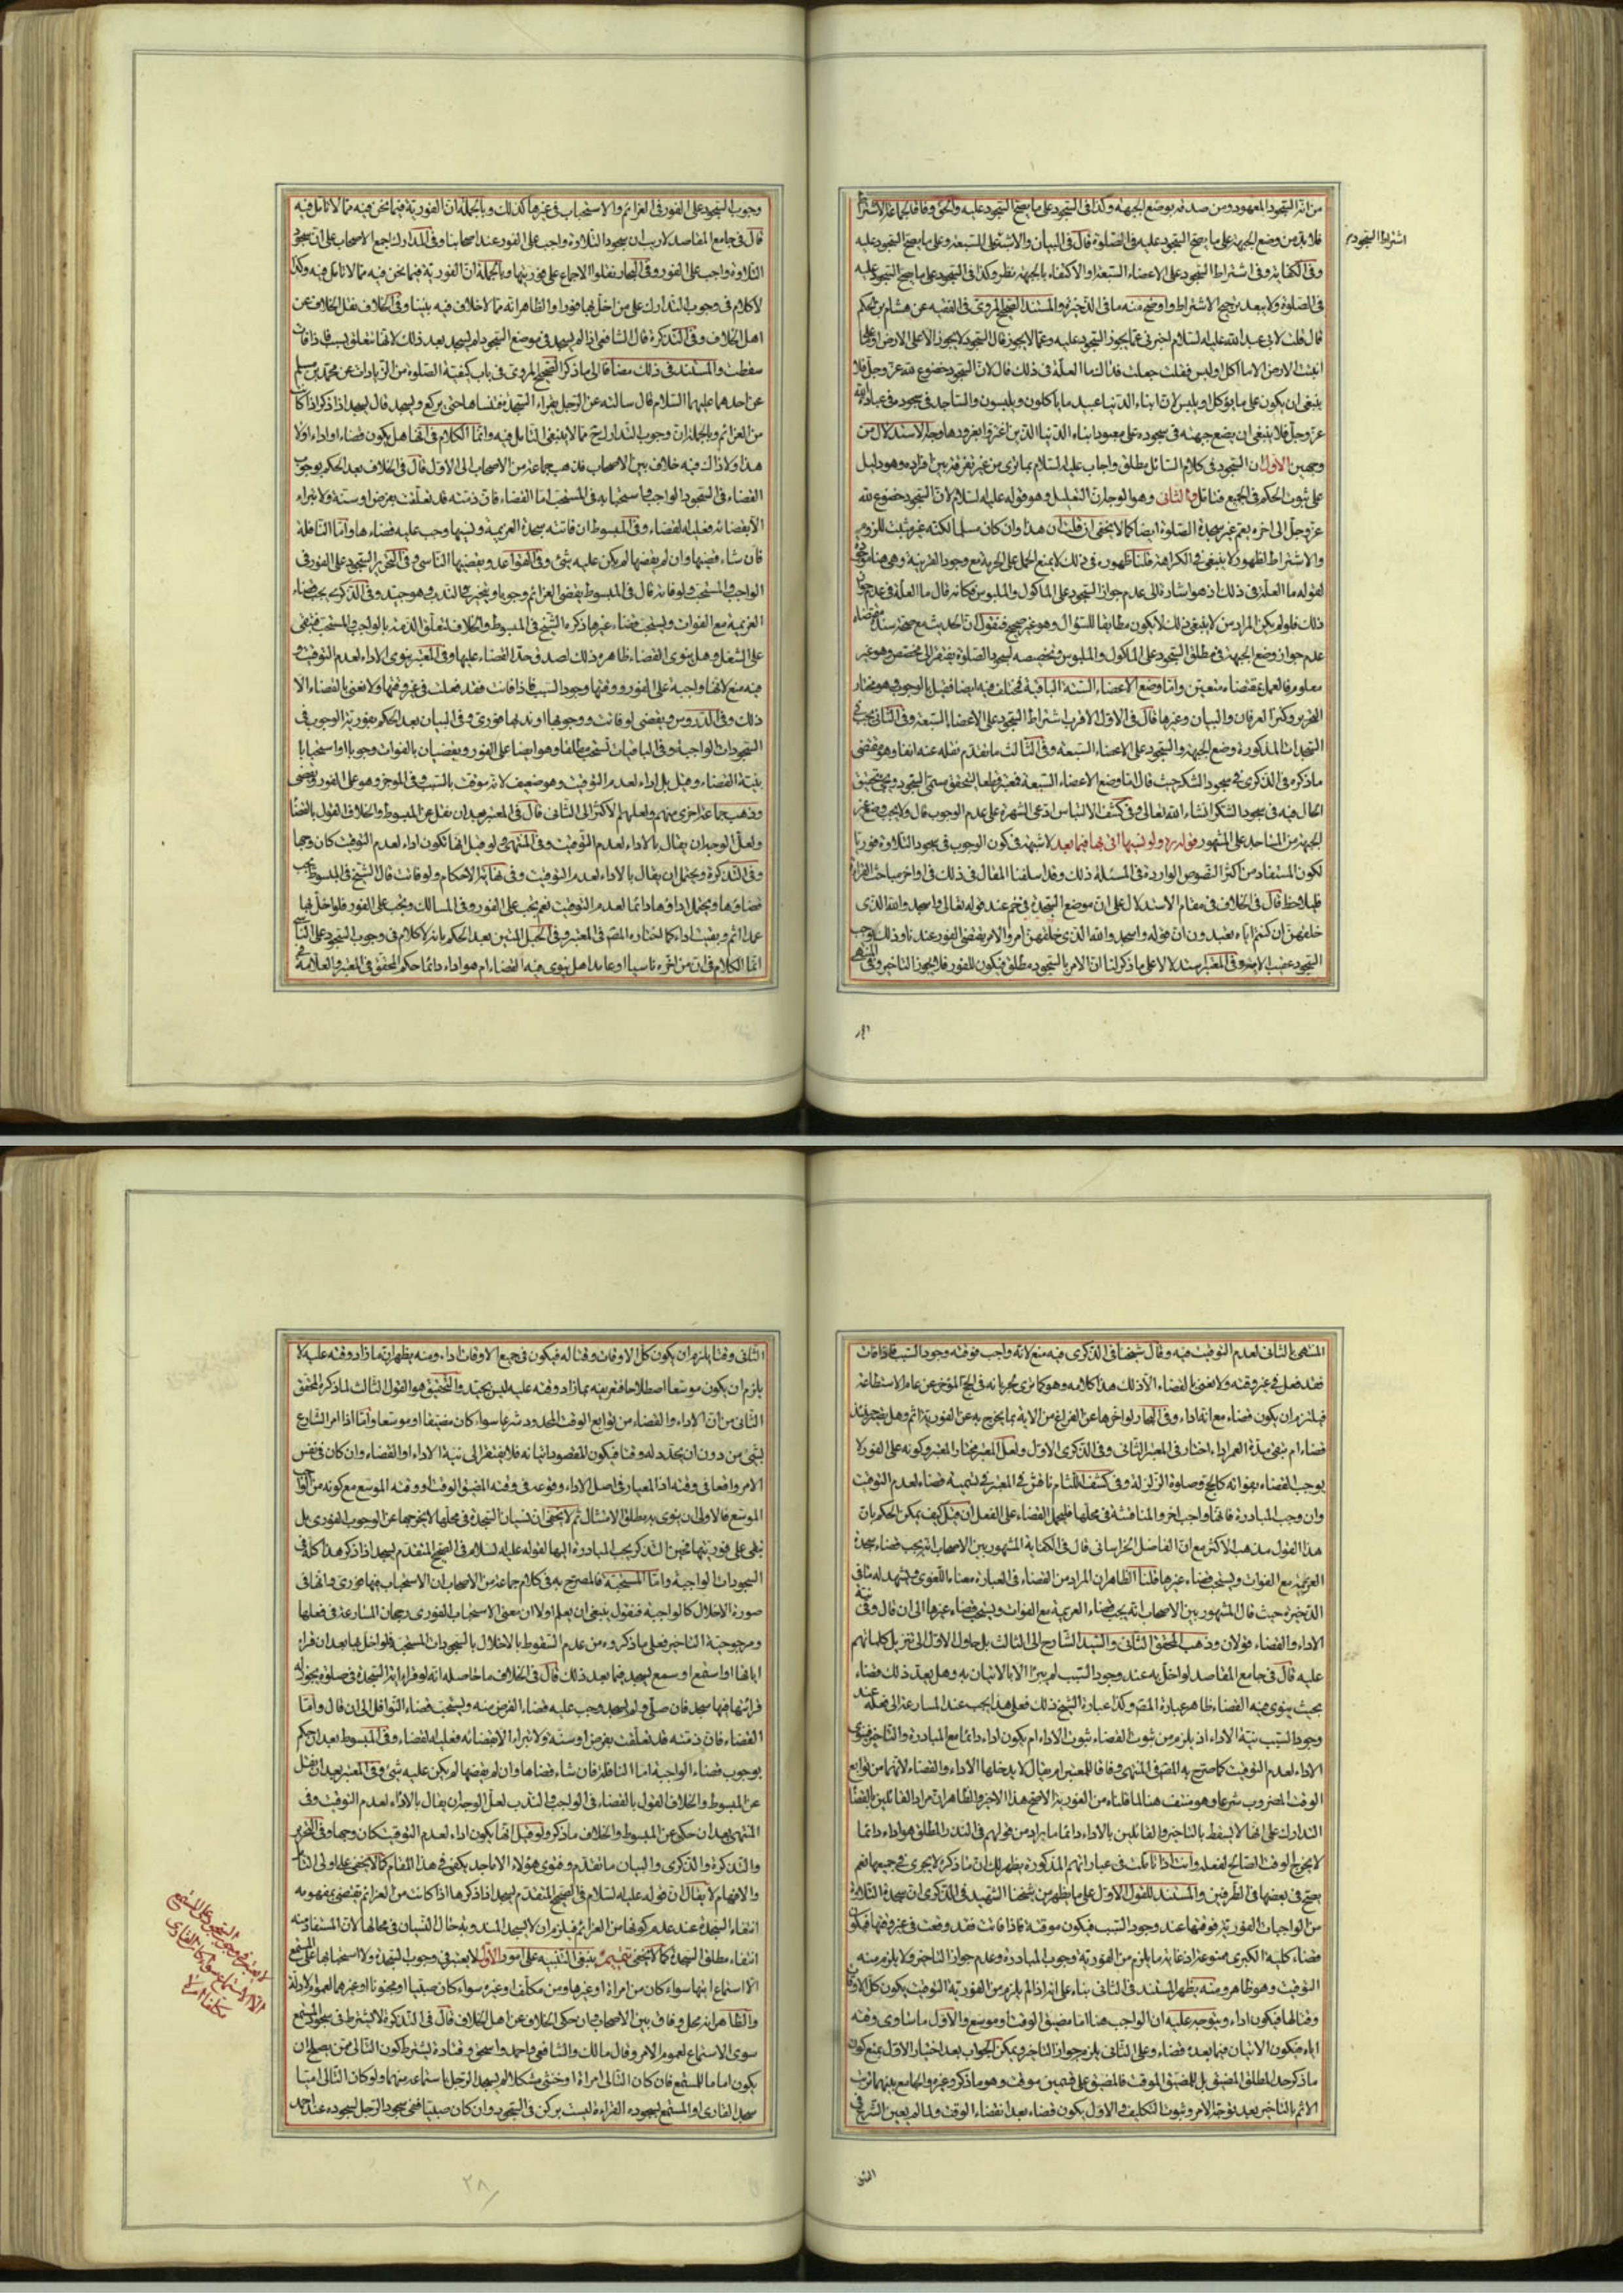 من ان السجود المعهود ومن صدقه بوضع الجبهة وكذا في السجود على ما يصح السجود عليه والحق وفاقا لجماعة الاشتراط
فلابد من وضع الجبهة على ما يصح السجود عليه في الصلوة قال في البيان والاشتراط السبعة وعلى ما يصح السجود عليه
اشتراط السجود
وفي الكفاية وفي اشتراط السجود على الاعضاء السبعة او الاكتفاء بالجبهة نظر وكذا في السجود على ما يصح السجود عليه
في الصلوة ولا يبعد ترجيح الاشتراط واوضح منه ما في الذخيرة والمستند الصحيح المروي في الفقيه عن هشام بن الحكم
قال قلت لابي عبد الله عليه السلام اخبرني عما يجوز السجود عليه وعما لا يجوز قال السجود لا يجوز الا على الارض او على ما
انبتت الارض الا ما اكل او لبس فقلت جعلت فداك ما العلة في ذلك قال لان السجود خضوع لله عز وجل فلا
ينبغي ان يكون على ما يؤكل او يلبس لان ابناء الدنيا عبيد ما ياكلون ويلبسون والساجد في سجوده في عبادة الله
عز وجل فلا ينبغي ان يضع جبهته في سجوده على معبود ابناء الدنيا الذين اغتروا بغرورها وجه الاستدلال من
وجهين الاول ان السجود في كلام السائل مطلق واجاب عليه السلام بما ترى من غير تفرقة بين افراده وهو دليل
على ثبوت الحكم في الجميع فتامل والثاني وهو الوجه ان التعليل وهو قوله عليه السلام لان السجود خضوع لله
عز وجل الى اخره يعم غير سجدة الصلوة ايضا كما لا يخفى ان قلت ان هذا وان كان مسلما لكنه غير مثبت للزوم
والاشتراط لظهور لا ينبغي في الكراهة قلنا ظهوره في ذلك لا يمنع الحمل على الحرمة مع وجود القرينة وهي هنا موجودة
لقوله ما العلة في ذلك اذ هو اشارة الى عدم جواز السجود على الماكول والملبوس فكانه قال ما العلة في عدم جواز
ذلك فلو لم يكن المراد من لا ينبغي ذلك لا يكون مطابقا للسؤال وهو غير صحيح فنقول ان الحديث مع صحة سنده مقتضاه
عدم جواز وضع الجبهة في مطلق السجود على الماكول والملبوس وتخصيصه لسجود الصلوة يفتقر الى مخصص وهو غير
معلوم فالعمل بمقتضاه متعين واما وضع الاعضاء الستة الباقية فمختلف فيه ايضا فقيل بالوجوب وهو مختار
التحرير وكنز العرفان والبيان وغيرها قال في الاول الاقرب اشتراط السجود على الاعضاء السبعة وفي الثاني يجب في
السجدات المذكورة وضع الجبهة والسجود على الاعضاء السبعة وفي الثالث ما تقدم نقله عنه انفا وهو مقتضى
ما ذكره في الذكرى في سجود الشكر حيث قال اما وضع الاعضاء السبعة فمعتبر قطعا ليتحقق مسمى السجود ويجيئ تحقيق
الحال فيه في سجود الشكر انشاء الله تعالى وفي كشف الالتباس ادعى الشهرة على عدم الوجوب قال ولا يجب وضع غير
الجبهة من المساجد على المشهور قوله ره ولو نسيها اتى بها فيما بعد لا شبهة في كون الوجوب في سجود التلاوة فوريا
لكون المستفاد من اكثر النصوص الواردة في المسئلة ذلك وقد اسلفنا المقال في ذلك في اواخر مباحث القراءة
فليلاحظ قال في الخلاف في مقام الاستدلال على ان موضع السجدة في حم عند قوله تعالى واسجدوا لله الذي
خلقهن ان كنتم اياه تعبدون ان قوله واسجدوا لله الذي خلقهن امر والامر يقتضي الفور عندنا وذلك يوجب
السجود عقيب الاية وفي المعتبر مستدلا لا على ما ذكر لنا ان الامر بالسجود مطلق فيكون للفور فلا يجوز التاخير وفي المنتهى
وجوب السجود على الفور في العزائم والاستحباب في غيرها كذلك وبالجملة ان الفورية فيما نحن فيه مما لا تامل فيه
قال في جامع المقاصد لا ريب ان سجود التلاوة واجب على الفور عند اصحابنا وفي المدارك اجمع الاصحاب على ان سجود
التلاوة واجب على الفور وفي البحار نقلوا الاجماع على فوريتها وبالجملة ان الفورية فيما نحن فيه مما لا تامل فيه وكذا
لا كلام في وجوب التدارك على من اخل بها فورا والظاهر انه مما لا خلاف فيه بيننا وفي الخلاف نقل الخلاف عن
اهل الخلاف وفي التذكرة قال الشافعي اذا لم يسجد في موضع السجود لم يسجد بعد ذلك لانها تتعلق بسبب فاذا فات
سقطت والمستند في ذلك مضافا الى ما ذكر الصحيح المروي في باب كيفية الصلوة من الزيادات عن محمد بن مسلم
عن احدهما عليهما السلام قال سالته عن الرجل يقراء السجدة فينساها حتى يركع ويسجد قال يسجد اذا ذكر اذا كانت
من العزائم وبالجملة ان وجوب التدارك مما لا ينبغي التامل فيه وانما الكلام في انها هل يكون قضاء او اداء او لا
هذا ولا ذاك فيه خلاف بين الاصحاب فذهب جماعة من الاصحاب الى الاول قال في الخلاف بعد الحكم بوجوب
القضاء في السجود الواجب واستحبابه في المستحب اما القضاء فان ذمته قد تعلقت بفرض او سنة ولا تبراء
الا بقضائه فعليه القضاء وفي المبسوط ان فاتته سجدة العزيمة ونسيها وجب عليه قضاءها واما النافلة
فان شاء قضيها وان لم يقضها لم يكن عليه شئ وفي القواعد ويقضيها الناسي وفي التحرير السجود على الفور في
الواجب والمستحب ولو فاته قال في المبسوط يقضي العزائم وجوبا ويتخير في الندب وهو جيد وفي الذكرى يجب قضاء
العزيمة مع الفوات ويستحب قضاء غيرها ذكره الشيخ في المبسوط والخلاف لتعلق الذمة بالواجب والمستحب فتبقى
على الشغل وهل ينوي القضاء ظاهره ذلك لصدق حد القضاء عليها وفي المعتبر ينوي الاداء لعدم التوقيت و
فيه منع لانها واجبة على الفور ووقتها وجود السبب فاذا فاتت فقد فعلت في غير وقتها ولا نعني بالقضاء الا
ذلك وفي الدروس ويقضى لو فاتت ووجوبها او ندبها فوري وفي البيان بعد الحكم بفورية الوجوب في
السجودات الواجبة وفي الباقيات تستحب مطلقا وهو ايضا على الفور ويقضيان بالفوات وجوبا او استحبابا
بنية القضاء وقيل بل اداء لعدم التوقيت وهو ضعيف لانه موقت بالسبب وفي الموجز وهو على الفور ويقضى
وذهب جماعة اخرى منهم ولعلهم الاكثر الى الثاني قال في المعتبر بعد ان نقل عن المبسوط والخلاف القول بالقضاء
ولعل الوجه ان يقال بالاداء لعدم التوقيت وفي المنتهى لو قيل انها تكون اداء لعدم التوقيت كان وجها
وفي التذكرة ويحتمل ان يقال بالاداء لعدم التوقيت وفي نهاية الاحكام ولو فاتت قال الشيخ في المبسوط يجب
قضاؤها ويحتمل اداؤها دائما لعدم التوقيت نعم يجب على الفور وفي المسالك ويجب على الفور فلو اخل بها
عمدا اثم وبقيت اداء كما اختاره المصنف في المعتبر وفي الحبل المتين بعد الحكم بانه لا كلام في وجوب السجود على الناسي
انما الكلام في ان من اخره ناسيا او عامدا هل ينوي فيه القضاء ام هو اداء دائما حكم المحقق في المعتبر والعلامة في
المنتهى بالثاني لعدم التوقيت فيه وقال شيخنا في الذكرى فيه منع لانه واجب فوقته وجود السبب فاذا فات
فقد فعل في غير وقته ولا نعني بالقضاء الا ذلك هذا كلامه وهو كما ترى لجريانه في الحج المؤخر عن عام الاستطاعة
فيلزم ان يكون قضاء مع انه اداء وفي البحار لو اخرها عن الفراغ من الاية بما يخرج به عن الفورية اثم وهل يصير حينئذ
قضاء ام تبقى مدة العمر اداء اختار في المعتبر الثاني وفي الذكرى الاول ولعل المعتبر مختار المعتبر وكونه على الفور لا
يوجب القضاء بفواته كالحج وصلوة الزلزلة وفي كشف اللثام ناقش في المعتبر في تسمية قضاء لعدم التوقيت
وان وجب المبادرة فانها واجب اخر والمناقشة في محلها فليحمل القضاء على الفعل ان قيل كيف يمكن الحكم بان
هذا القول مذهب الاكثر مع ان الفاضل الخراساني قال في الكفاية المشهور بين الاصحاب انه يجب قضاء سجدة
العزيمة مع الفوات ويستحب قضاء غيرها قلنا الظاهر ان المراد من القضاء في العبارة معناه اللغوي ويشهد له ما في
الذخيرة حيث قال المشهور بين الاصحاب انه يجب قضاء العزيمة مع الفوات ويستحب قضاء غيرها الى ان قال وفي نية
الاداء والقضاء قولان وذهب المحقق الثاني والسيد الشارح الى الثالث بل حاول الاول الى تنزيل كلماتهم
عليه قال في جامع المقاصد لو اخل به عند وجود السبب لم يبرا الا بالاتيان به وهل يعد ذلك قضاء
بحيث ينوي فيه القضاء ظاهر عبارة المصنف وكذا عبارة الشيخ ذلك فعلى هذا يجب عند المسارعة الى فعله عند
وجود السبب نية الاداء اذ يلزم من ثبوت القضاء ثبوت الاداء ام يكون اداء دائما مع المبادرة والتاخير فينوي
الاداء لعدم التوقيت كما صرح به المصنف في المنتهى وفاقا للمعتبر ام يقال لا يدخلها الاداء والقضاء لانهما من توابع
الوقت المضروب شرعا وهو منتف هنا لما قلناه من الفورية الاصح هذا الاخير والظاهر ان مراد القائلين بالقضاء
التدارك على انها لا يسقط بالتاخير والقائلين بالاداء دائما ما يراد من قولهم في النذر المطلق هو اداء دائما
لا يخرج الوقت الصالح لفعله وانت اذا تاملت في عباراتهم المذكورة يظهر لك ان ما ذكره لا يجري في جميعها نعم
يصح في بعضها في الطرفين والمستند للقول الاول على ما يظهر من شيخنا الشهيد في الذكرى ان سجدة التلاوة
من الواجبات الفورية فوقتها عند وجود السبب فيكون موقتة فاذا فاتت فقد وقعت في غير وقتها فيكون
قضاء كلية الكبرى ممنوعة اذ غاية ما يلزم من الفورية وجوب المبادرة وعدم جواز التاخير ولا يلزم منه
التوقيت وهو ظاهر ومنه يظهر المستند في الثاني بناء على انه اذا لم يلزم من الفورية التوقيت يكون كل الاوقات
وقتا لها فيكون اداء ويتوجه عليه ان الواجب هنا اما مضيق الوقت او موسع والاول ما ساوى وقته
اياه فيكون الاتيان فيما بعده قضاء وعلى الثاني يلزم جواز التاخير ويمكن الجواب بعد اختيار الاول بمنع كون
ما ذكر حدا لمطلق المضيق بل للمضيق الموقت فالمضيق على قسمين موقت وهو ما ذكر وغيره والجامع بينهما ترتب
الاثم بالتاخير بعد توجه الامر وثبوت التكليف في الاول يكون قضاء بعد انقضاء الوقت ولما لم يعين الشرع في
الثاني
الثاني وقتا يلزم ان يكون كل الاوقات وقتا له فيكون في جميع الاوقات اداء ومنه يظهر ان ما زاد وقته عليه لا
يلزم ان يكون موسعا اصطلاحا فتعريفه بما زاد وقته عليه ليس بجيد والتحقيق هو القول الثالث لما ذكره المحقق
الثاني من ان الاداء والقضاء من توابع الوقت المحدود شرعا سواء كان مضيقا او موسعا واما اذا امر الشارع
بشئ من دون ان يحدد له وقتا فيكون المقصود اتيانه فلا يفتقر الى نية الاداء او القضاء وان كان في نفس
الامر واقعا في وقته اذ المعيار في اصل الاداء وقوعه في وقته المضيق الوقت او وقته الموسع مع كونه من الواجب
الموسع فالاولى ان ينوي به مطلق الامتثال ثم لا يخفى ان نسيان السجدة في محلها لا يخرجها عن الوجوب الفوري بل
تبقى على فوريتها فحين التذكر يجب المبادرة اليها لقوله عليه السلام في الصحيح المتقدم يسجد اذا ذكر هذا كله في
السجودات الواجبة واما المستحبة فالمصرح به في كلام جماعة من الاصحاب ان الاستحباب فيها فوري وانها في
صورة الاخلال كالواجبة فنقول ينبغي ان يعلم اولا ان معنى الاستحباب الفوري رجحان المسارعة في فعلها
ومرجوحية التاخير فعلى ما ذكروه من عدم السقوط بالاخلال بالسجودات المستحبة فلو اخل بها بعد ان قراء
اياتها او استمع او سمع يسجد فيما بعد ذلك قال في الخلاف ما حاصله انه لو قراء اية السجدة في صلوة يجوز له
قرائتها فيها سجد فان صلى ولم يسجد وجب عليه قضاء الفرض منه ويستحب قضاء النوافل الى ان قال واما
القضاء فان ذمته قد تعلقت بفرض او سنة ولا تبراء الا بقضائه فعليه القضاء وفي المبسوط بعد ان حكم
بوجوب قضاء الواجبة اما النافلة فان شاء قضاها وان لم يقضها لم يكن عليه شئ وفي المعتبر بعد ان نقل
عن المبسوط والخلاف القول بالقضاء في الواجب والندب لعل الوجه ان يقال بالاداء لعدم التوقيت وفي
المنتهى بعد ان حكى عن المبسوط والخلاف ما ذكر ولو قيل انها يكون اداء لعدم التوقيت كان وجها وفي التحرير
والتذكرة والذكرى والبيان ما تقدم وفتوى هؤلاء الاماجد يكفي في هذا المقام كما لا يخفى على اولى النهى
والافهام لا يقال ان قوله عليه السلام في الصحيح المتقدم يسجد اذا ذكرها اذا كانت من العزائم تقتضي بمفهومه
انتفاء السجدة عند عدم كونها من العزائم فيلزم ان لا يسجد المندوبة حال النسيان في محالها لان المستفاد منه
انتفاء مطلق السجدة كما لا يخفى تتميم ينبغي التنبيه على امور الاول لا يعتبر في وجوب السجدة ولا استحبابها على المستمع
الا استماع ايتها سواء كان من امراة او غيرها ومن مكلف او غيره سواء كان صبيا او مجنونا او غيرهما لعموم الادلة
والظاهر انه محل وفاق بين الاصحاب فان حكى الخلاف عن اهل الخلاف قال في التذكرة لا يشترط في سجود المستمع
سوى الاستماع لعموم الامر وقال مالك والشافعي واحمد واسحق وقتادة يشترط كون التالي ممن يصلح ان
يكون اماما للمستمع فان كان التالي امراة او خنثى مشكلا لم يسجد الرجل باستماعه منهما ولو كان التالي اميا
سجد القاري او المستمع لسجوده القراءة ليست بركن في السجود وان كان صبيا ففي سجود الرجل لسجوده عند احمد
لا يعتبر في وجوب السجدة على المستمع
الا الاستماع سواء كان القاري
مكلفا ام لا
٢٨